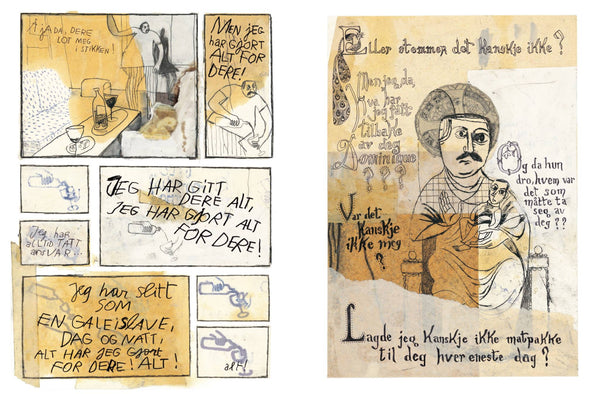 JADA, DERE
LOT MEG
I STIKKEN!
MEN JEG
har GJORT
ALT FOR
DERE!
JEG HAR GITT
DERE ALT,
JEG HAR GJORT ALT
FOR DERE!
Jeg har
alltid TATT
ansVAR...
jeg har slitt
SOM
EN GALEISLAVE,
DAG OG NATT,
ALT HAR JEG GJORT
FOR DERE! ALT!
alt!
Eller stemmer det kanskje ikke?
Men jeg, da,
hva har
jeg fått
tilbake
av deg
Dominique
???
Og da hun
dro, hvem var
det som
måtte ta
seg av
deg??
Var det
kanskje
ikke meg
?
Lagde jeg kanskje ikke matpakke
til deg hver eneste dag?